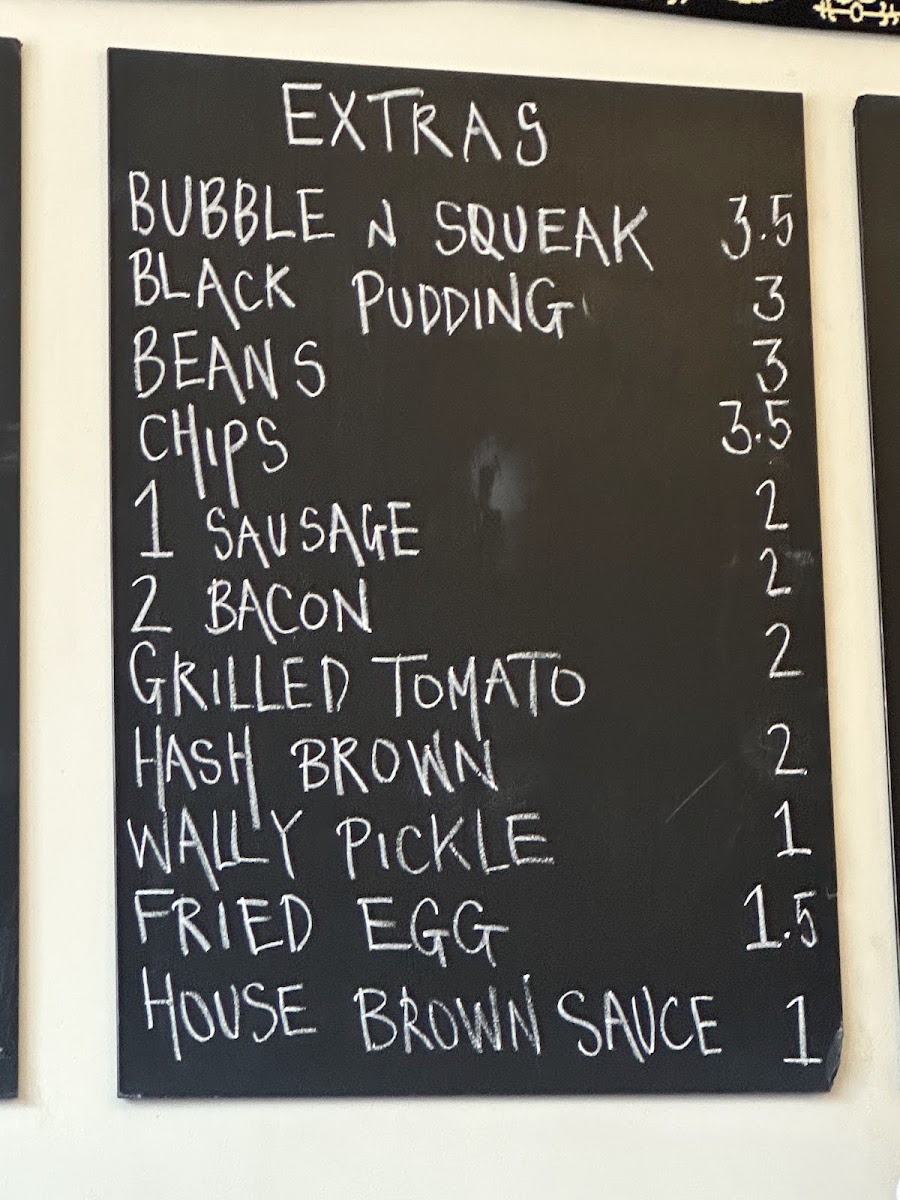 EXTRAS
BUBBLE N SQUEAK 3.5
BLACK PUDDING 3
BEANS 3
CHIPS 3.5
1 SAUSAGE 2
2 BACON 2
GRILLED TOMATO 2
HASH BROWN 2
WALLY PICKLE 1
FRIED EGG 1.5
HOUSE BROWN SAUCE 1